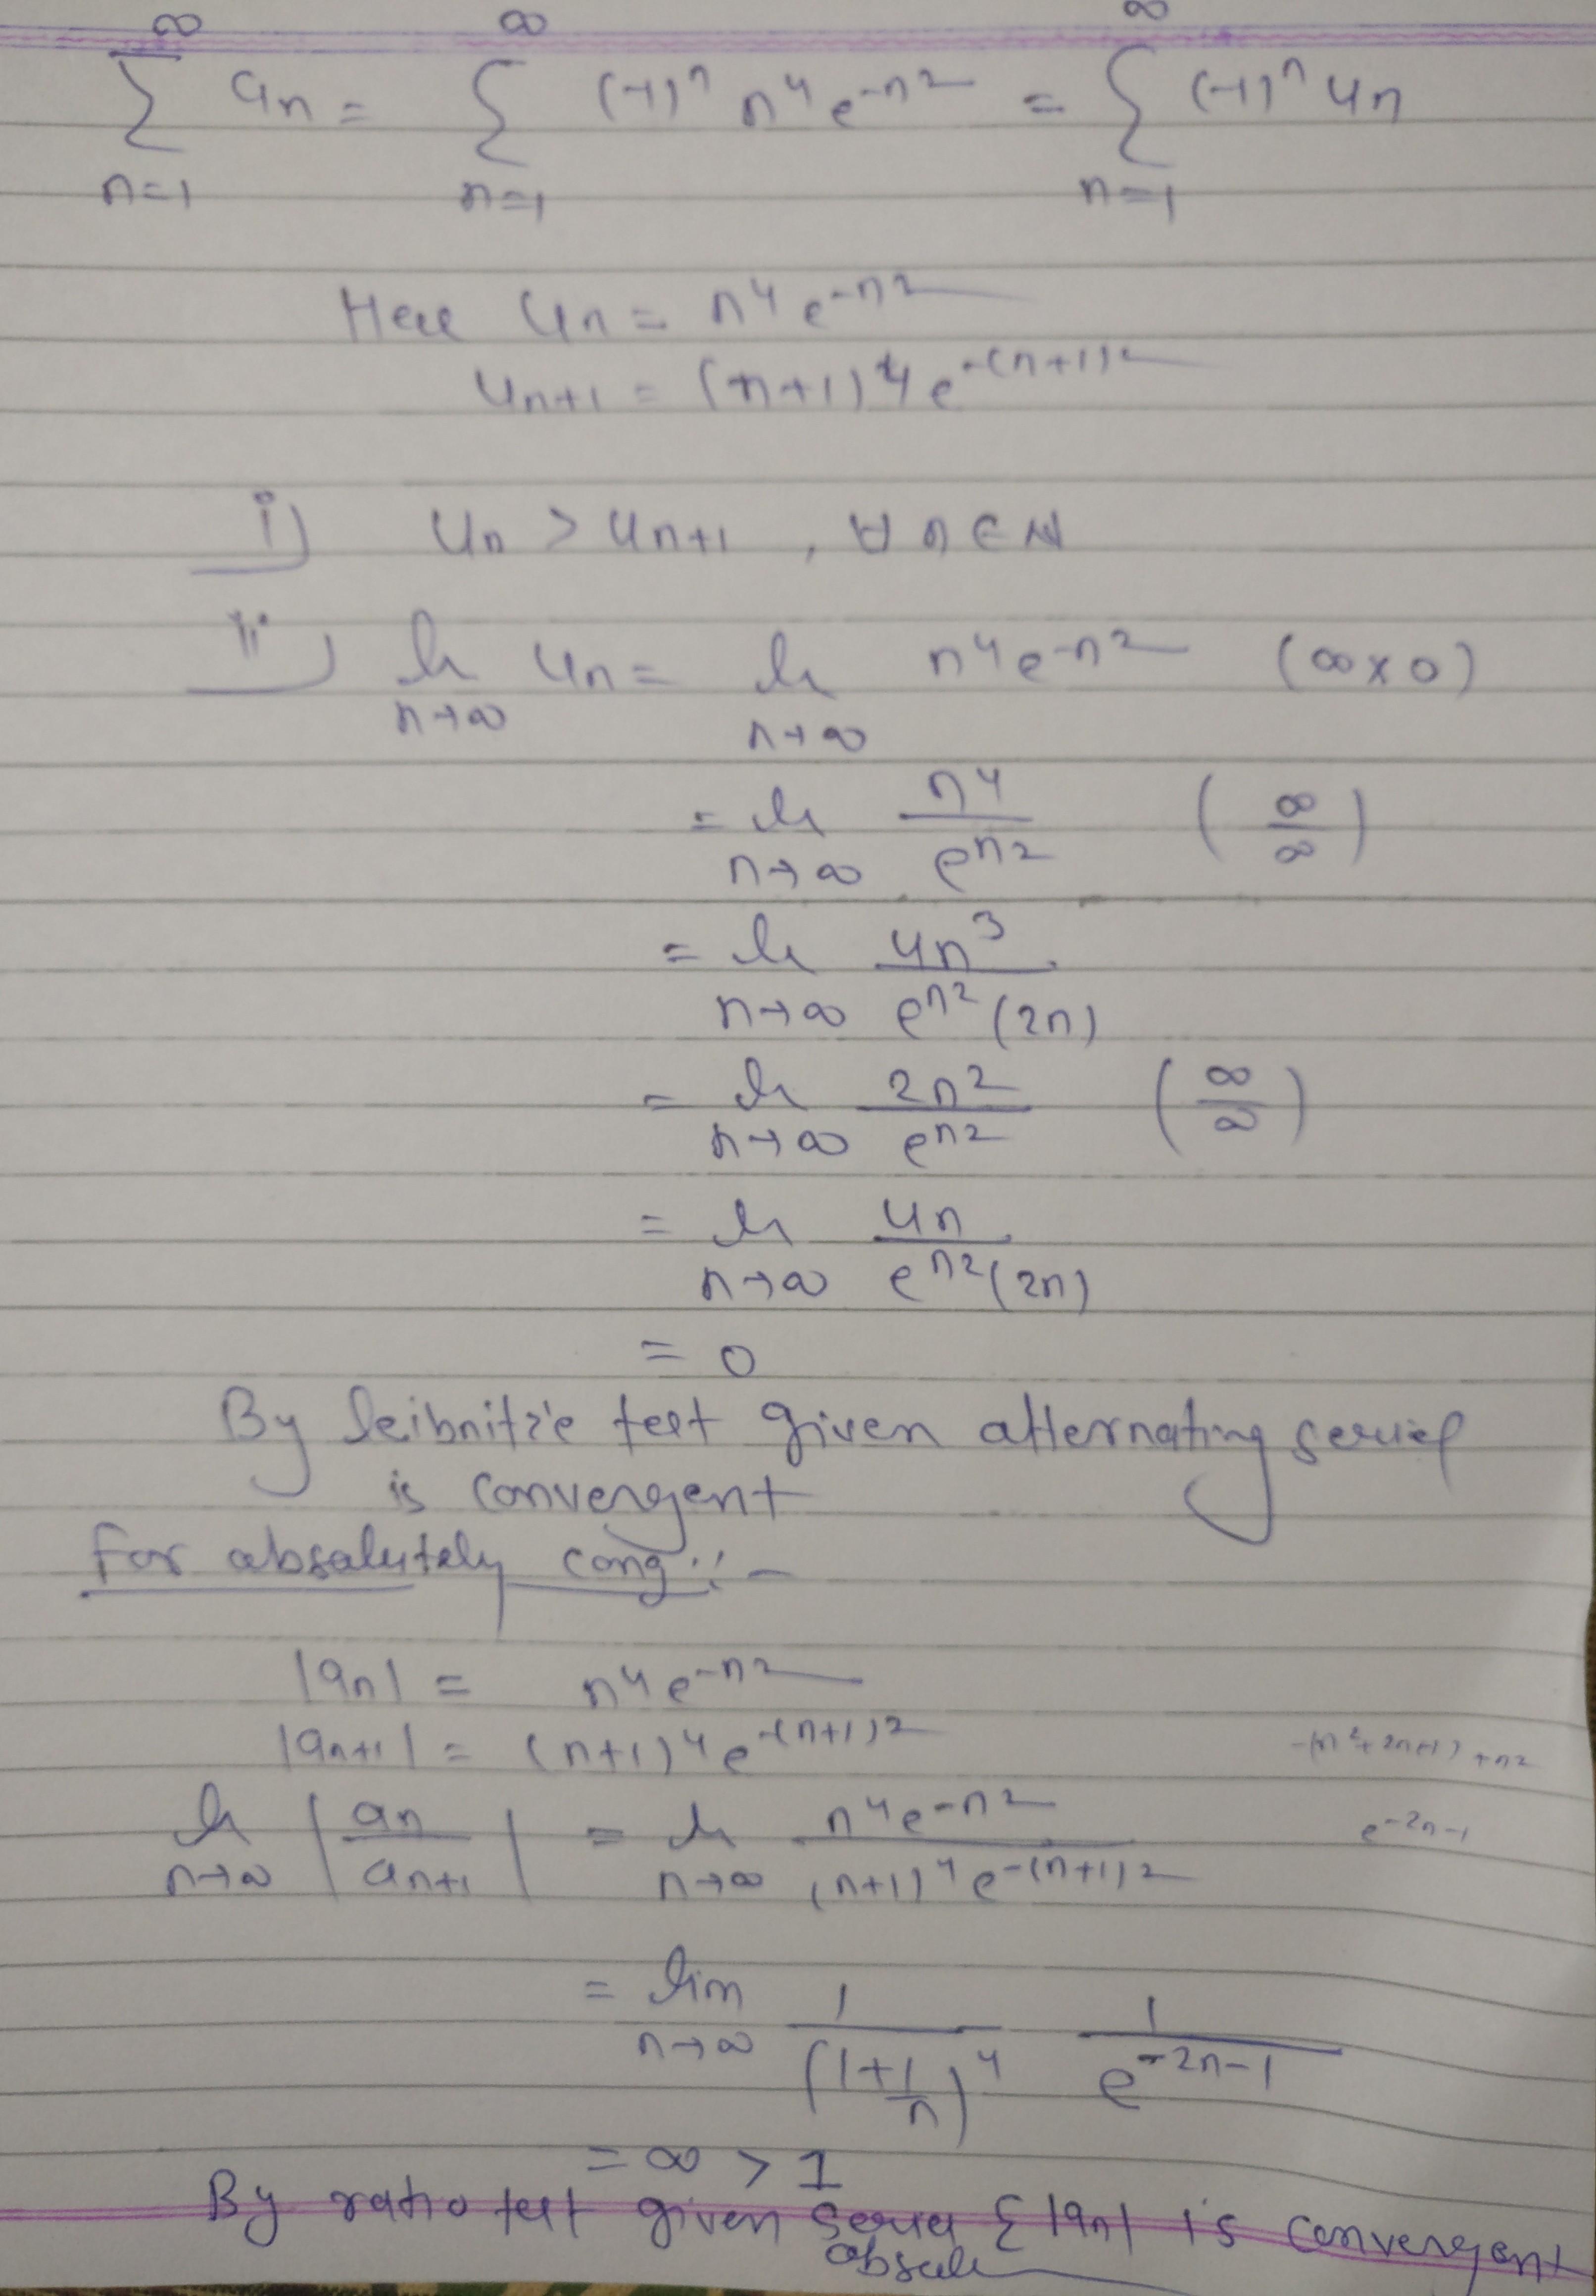 ∞ ∞ ∞
Σ an = Σ (-1)ⁿ n⁴e⁻ⁿ² = Σ (-1)ⁿ un
n=1 n=1 n=1
Here un = n⁴e⁻ⁿ²
un+1 = (n+1)⁴ e^-(n+1)²
i) un > un+1 , ∀ n ∈ N
ii) lt un = lt n⁴e⁻ⁿ² (∞ x 0)
n→∞ n→∞
= lt n⁴ / eⁿ² (∞/∞)
n→∞
= lt 4n³ / eⁿ²(2n)
n→∞
= lt 2n² / eⁿ² (∞/∞)
n→∞
= lt 4n / eⁿ²(2n)
n→∞
= 0
By leibnitz's test given alternating series
is convergent
for absalutely cong :-
|an| = n⁴e⁻ⁿ²
|an+1| = (n+1)⁴e^-(n+1)² -(n²+2n+1)+n²
lt |an / an+1| = lt n⁴e⁻ⁿ² / (n+1)⁴e^-(n+1)² e^-2n-1
n→∞ n→∞
= lim 1 / (1+1/n)⁴ 1 / e^-2n-1
n→∞
= ∞ > 1
By ratio test given series Σ|an| is convergent